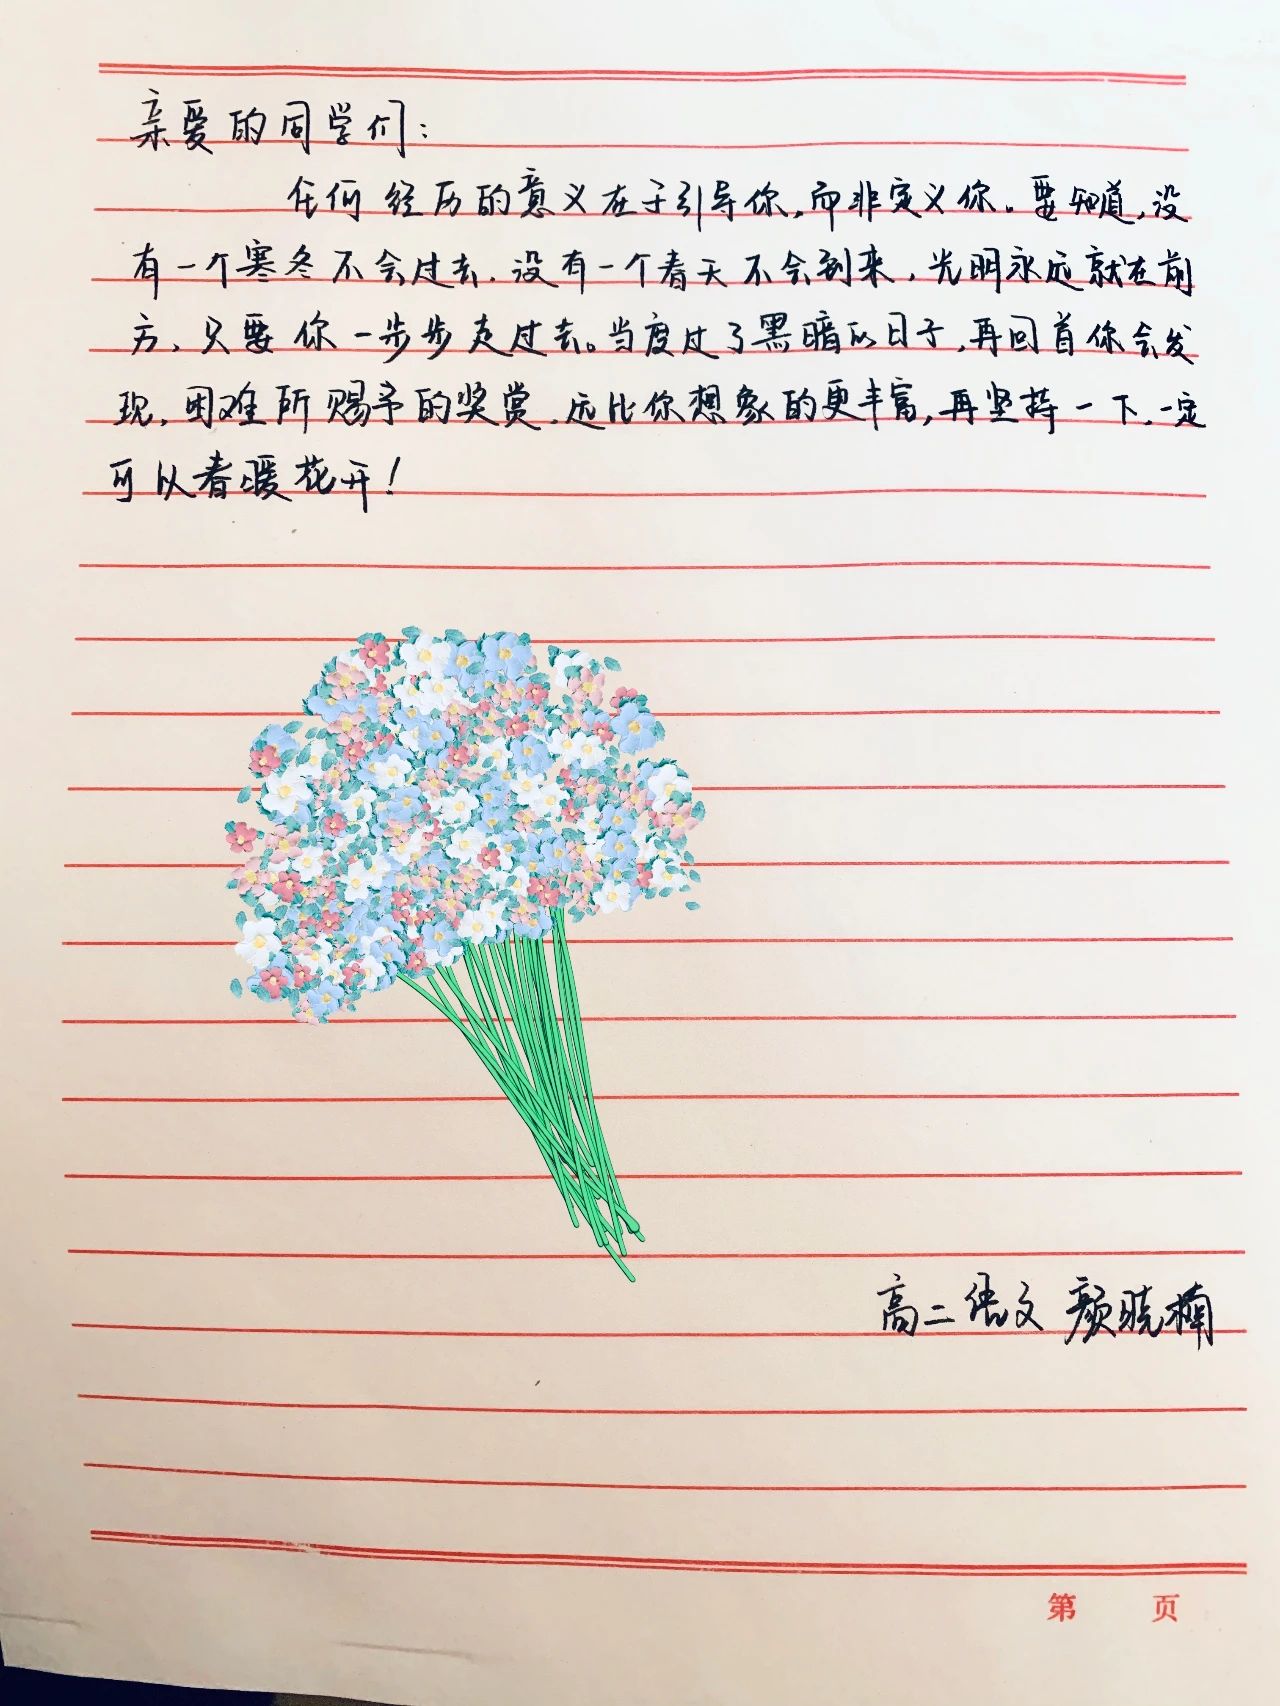 亲爱的同学们：
任何经历的意义在于引导你，而非定义你。要知道，没
有一个寒冬不会过去，没有一个春天不会到来，光明永远就在前
方，只要你一步步走过去。当度过了黑暗的日子，再回首你会发
现，困难所赐予的奖赏，远比你想象的更丰富，再坚持一下，一定
可以春暖花开！
高二语文 颜晓楠
第 页